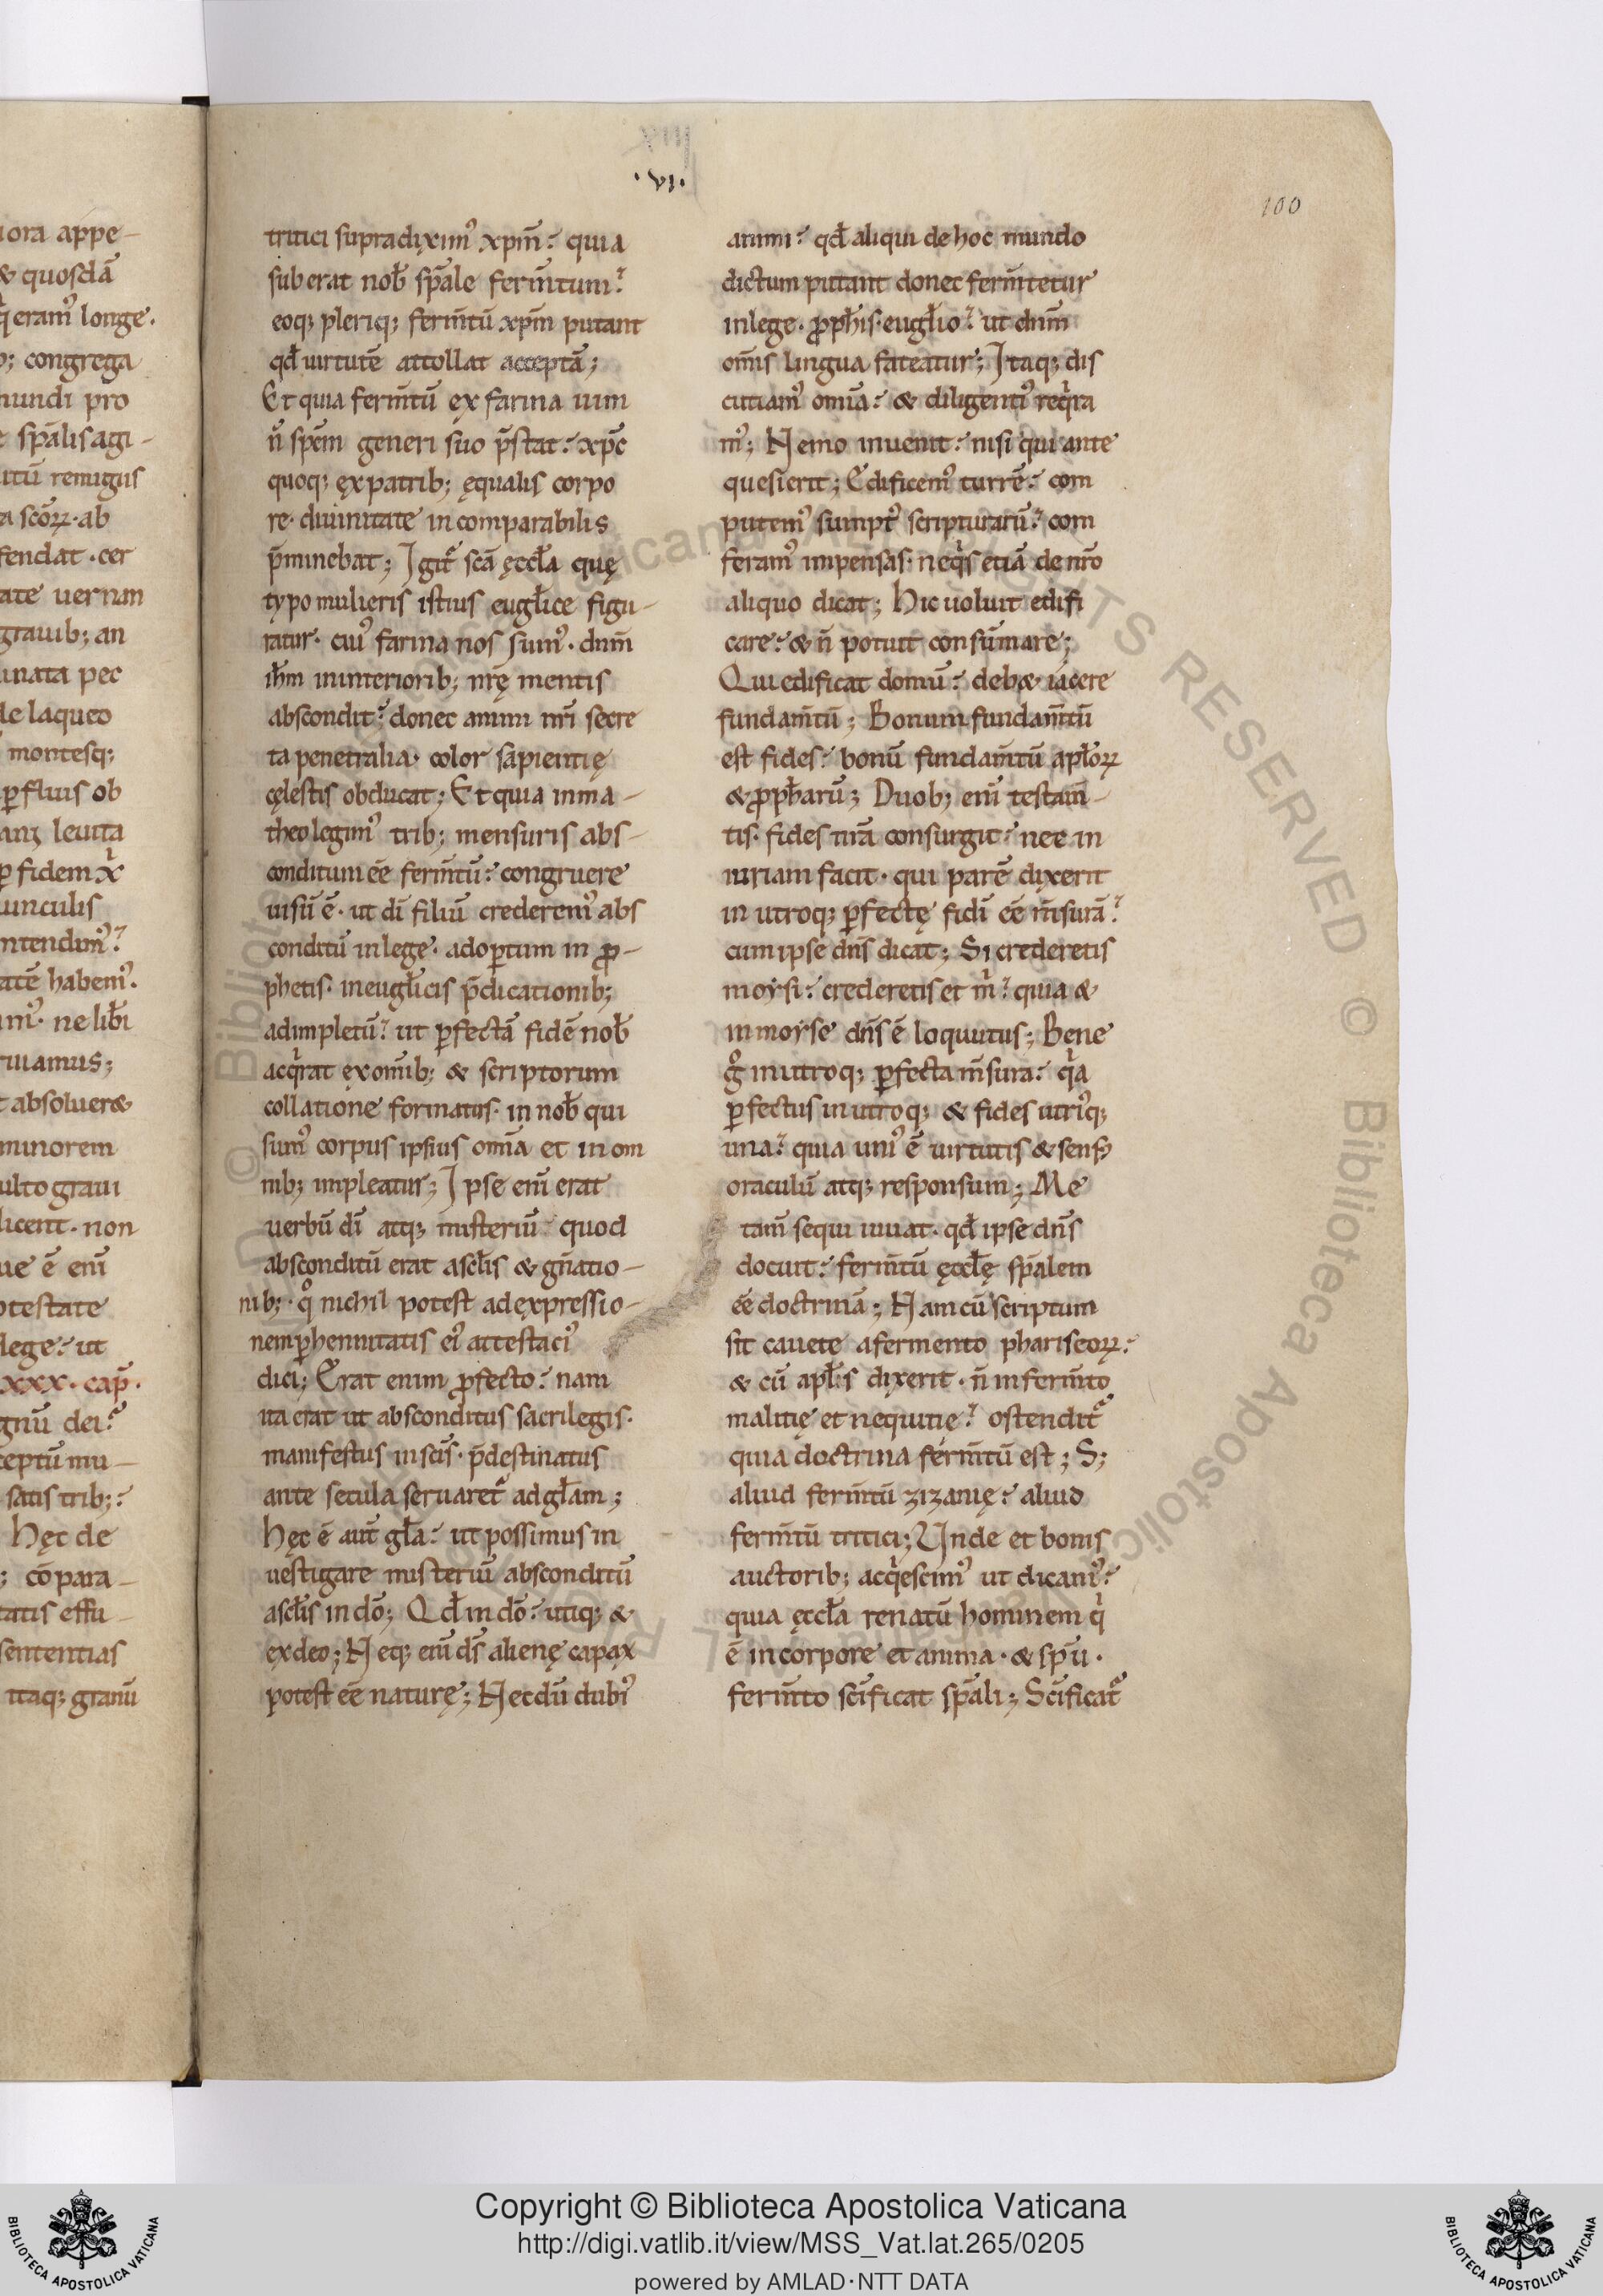 iora appe-
& quosdā
q̇ eram᾿ longe.
o; congrega
nundi pro
e spālis agi-
itū remigiis
a scōꝝ·ab
fendat·cer
ate uerum
grauib; an
inata pec
de laqueo
montesq;
ꝑfluis ob
anz leuita
ꝑ fidem xͥ
unculis
ntendim᾿?
atē habem᾿.
m᾿· ne libi
ruamus;
t absoluer&
minorem
ulto graui
licent·non
ue ē enī
otestate
lege? ut
xxx·cap̄·
gnū dei?
ceptū mu-
satis trib;?
Hęc de
; cōpara-
tatis effu-
sententias
itaq; granū
XIII
·VI·
100
tritici supradiximᵒ xpm̄? quia
suberat nob̄ spāle ferm̄tum?
eoq; pleriq; ferm̄tū xpm̄ putant
qđ uirtutē attollat acceptā;
Et quia ferm̄tū ex farina uim
n̄ spēm generi suo p̄stat? xp̄c
quoq; ex patrib; ęqualis corpo
re· diuinitate incomparabilis
p̄minebat; Igit᾿ scā ęccła quę
typo mulieris istius eugłice figu-
ratur· cui᾿ farina nos sum᾿· dnm̄
ihm̄ in interiorib; nr̄ę mentis
abscondit? donec animi nr̄i secre
ta penetralia· color sapientię
cęlestis obducat; Et quia in ma-
theo legim᾿ trib; mensuris abs-
conditum eē ferm̄tū? congruere
uisū ē· ut dī filiū crederem᾿ abs
conditū in lege· adoꝑtum in ꝓ-
phetis· in eugłicis p̄dicationib;
adimpletū? ut ꝑfectā fidē nob̄
acqͥrat ex omīb; & scriptorum
collatione formatus· in nob̄ qui
sum᾿ corpus ipsius omīa et in om
nib; impleatur; Ipse enī erat
uerbū dī atq; misteriū quod
absconditū erat a scłis & gn̄atio-
nib;· qͦ nichil potest ad expressio-
nem ꝑhennitatis ei᾿ attestaci᾿
dici; Erat enim ꝓfecto? nam
ita erat ut absconditus sacrilegis·
manifestus in scīs· p̄destinatus
ante secula seruaret᾿ ad głam;
Hęc ē aut̄ gła? ut possimus in
uestigare misteriū absconditū
a scłis in dō; Qđ in dō? utiq; &
ex deo; Neq; enī ds̄ alienę capax
potest eē naturę; Nec dū dubi᾿
animi? qđ aliqui de hoc mundo
dictum putant donec ferm̄tetur
in lege· ꝓph̄is· eugłio? ut dnm̄
omīs lingua fateatur; Itaq; dis
cutiam᾿ omīa? & diligenti᾿ reqͥra
m᾿; Nemo inuenit? nisi qui ante
quesierit; Edificem᾿ turrē? com
putem᾿ sumpt᾿ scripturarū? com
feram᾿ impensas· neqͥs etiā de nr̄o
aliquo dicat; Hic uoluit edifi
care? & n̄ potuit consūmare;
Qui edificat domū? deb& iacere
fundam̄tū; Bonum fundam̄tū
est fides? bonū fundam̄tū apłoꝝ
& ꝓph̄arū; Duob; enī testam̄-
tis· fides nr̄a consurgit? nec in
iuriam facit· qui parē dixerit
in utroq; ꝑfectę fidī eē m̄surā?
cum ipse dn̄s dicat; Si crederetis
moysi? crederetis et mͥ? quia &
in moyse dn̄s ē loquutus; Bene
gͦ in utroq; ꝑfecta m̄sura? qͥa
ꝑfectus in utroq; & fides utriq;
una? quia uni᾿ ē uirtutis & sens᾿
oraculū atq; responsum; Me
tam̄ sequi iuuat· qđ ipse dn̄s
docuit? ferm̄tū ęccłę spālem
eē doctrinā; Nam cū scriptum
sit cauete a fermento phariseoꝝ?
& cū apłis dixerit· n̄ in ferm̄to
malitię et nequitię? ostendit᾿
quia doctrina ferm̄tū est; S;
aliud ferm̄tū zizanię? aliud
ferm̄tū tritici; Unde et bonis
auctorib; acqͥescim᾿ ut dicam᾿?
quia ęccła renatū hominem qͥ
ē in corpore et anima· & spū·
ferm̄to scīficat spāli; Scīficat᾿
Copyright © Biblioteca Apostolica Vaticana
http://digi.vatlib.it/view/MSS_Vat.lat.265/0205
powered by AMLAD·NTT DATA
BIBLIOTECA APOSTOLICA VATICANA
BIBLIOTECA APOSTOLICA VATICANA